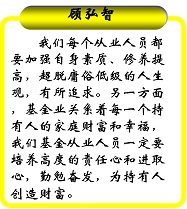 顾弘智
我们每个从业人员都
要加强自身素质、修养提
高，超脱庸俗低级的人生
观，有所追求。另一方面
，基金业关系着每一个持
有人的家庭财富和幸福，
我们基金从业人员一定要
培养高度的责任心和进取
心，勤勉奋发，为持有人
创造财富。